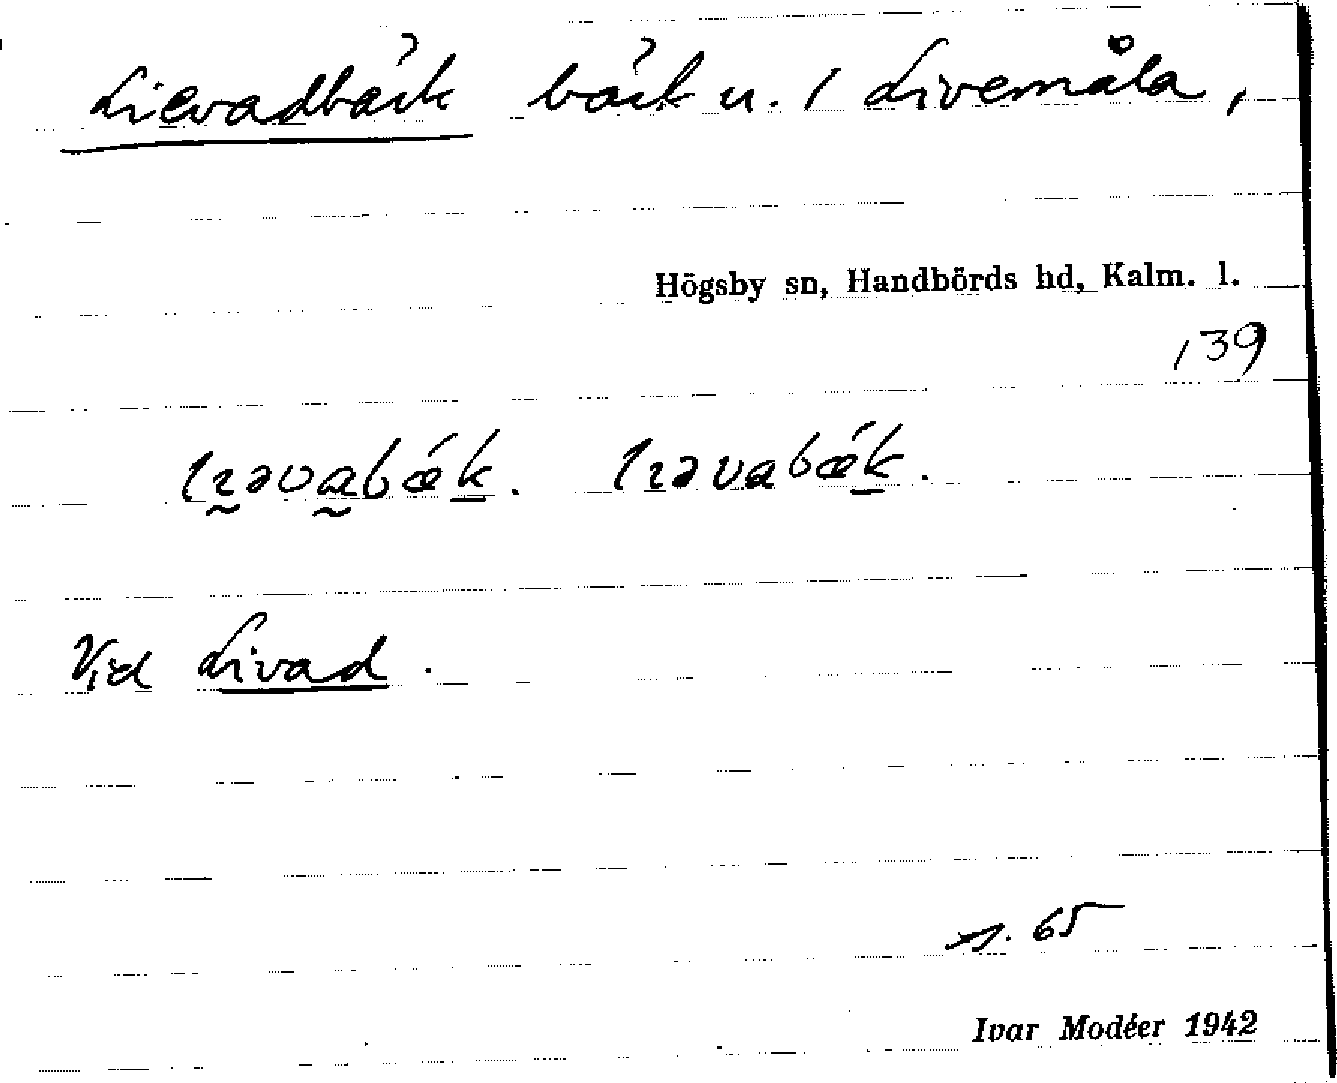 Lievadbäck bäck u. / Livemåla,
Högsby sn, Handbörds hd, Kalm. l.
139
lıəvabǽk. lıəvabǽk.
Vid Livad.
s. 65
Ivar Modéer 1942